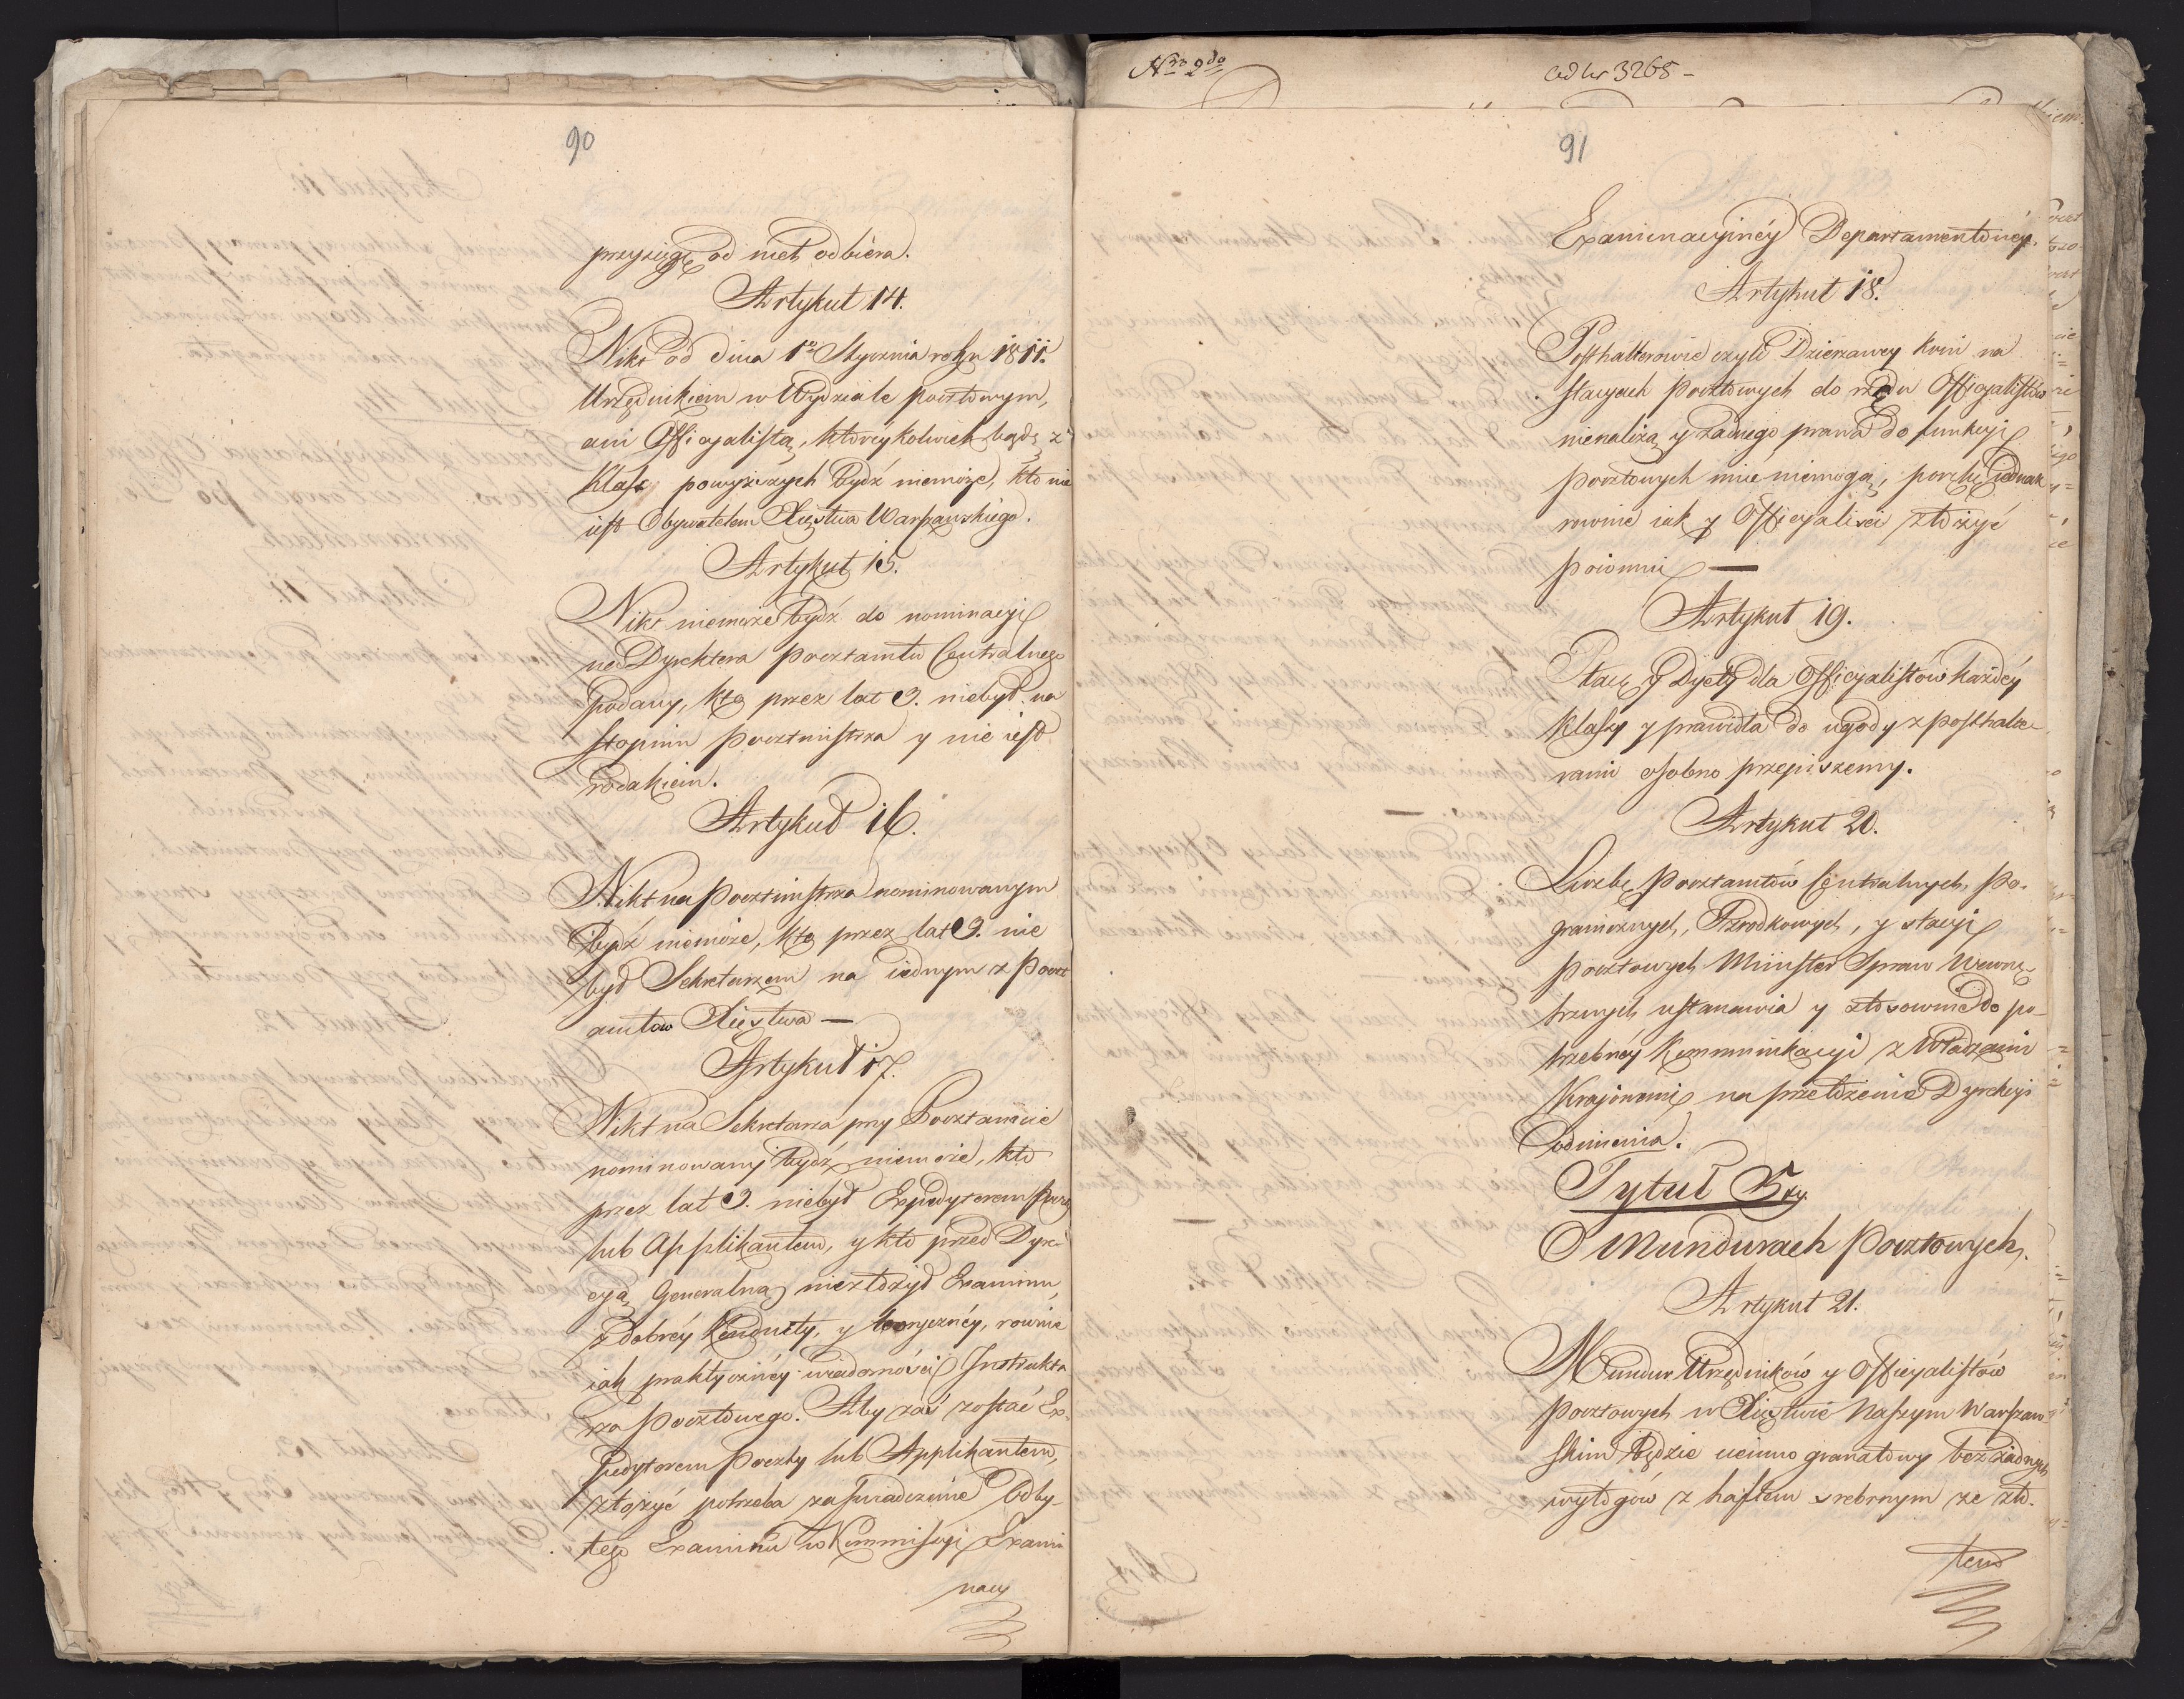 90
przysięgę od nich odbiera.
Artykuł 14.
Nikt od dnia 1o Stycznia roku 1811.
Urzędnikiem w Wydziale pocztowym,
ani Officyalistą, któreykolwiek bądź z
Klass powyższych bydź niemoże, kto nie
iest Obywatelem Xięstwa Warszawskiego.
Artykuł 15.
Nikt niemoże bydź do nominacyi
na Dyrektora Pocztamtu Centralnego
podany, kto przez lat 3. niebył na
stopniu Pocztmistrza y nie iest
rodakiem.
Artykuł 16.
Nikt na Pocztmistrza nominowanym
bydź niemoże, kto przez lat 3. nie
był Sekretarzem na iednym z Poczt
amtów Xięstwa —
Artykuł 17.
Nikt na Sekretarza przy Pocztamcie
nominowany bydź niemoże, kto
przez lat 3. niebył Expedytorem Poczty
lub Applikantem, y kto przed Dyrek
cyą Generalną niezłożył Examinu,
z dobréy Konduity, y teoryczney, rownie
iak praktyczney wiadomości Instrukta
rza Pocztowego. Aby zaś zostać Ex-
pedytorem Poczty lub Applikantem,
złożyć potrzeba zaświadczenie odby-
tego Examinu w Kommissyi Exami
nacy
Nro 2do
ad Nr 3268 -
91
Examinacyinéy Departamentowéy.
Artykuł 18.
Posthalterowie czyli Dzierzawcy koni na
stacyach pocztowych do rzędu Officyalistów
nienależą y żadnego prawa do funkcyi
pocztowych mieć niemogą, porękę iednak
rownie iak y Officyaliści złożyć
powinni —
Artykuł 19.
Płacę y Dyety dla Officyalistów każdéy
klassy y prawidła do ugody z posthalte-
rami osobno przepiszemy.
Artykuł 20.
Liczbę Pocztamtów Centralnych, Po-
granicznych, Srzodkowych, y stacyi
Pocztowych Minister Spraw Wewnę-
trznych ustanawia y stosownie do po-
trzebnéy Kommunikacyi z Władzami
Krajowemi na przełożenie Dyrekcyi
odmienia.
Tytuł 5ty.
O Mundurach Pocztowych.
Artykuł 21.
Mundur Urzędników y Officyalistów
Pocztowych w Xięstwie Naszym Warszaw-
skim będzie ciemno granatowy bez żadnych
wyłogów z haftem srebrnym ze zło-
tem